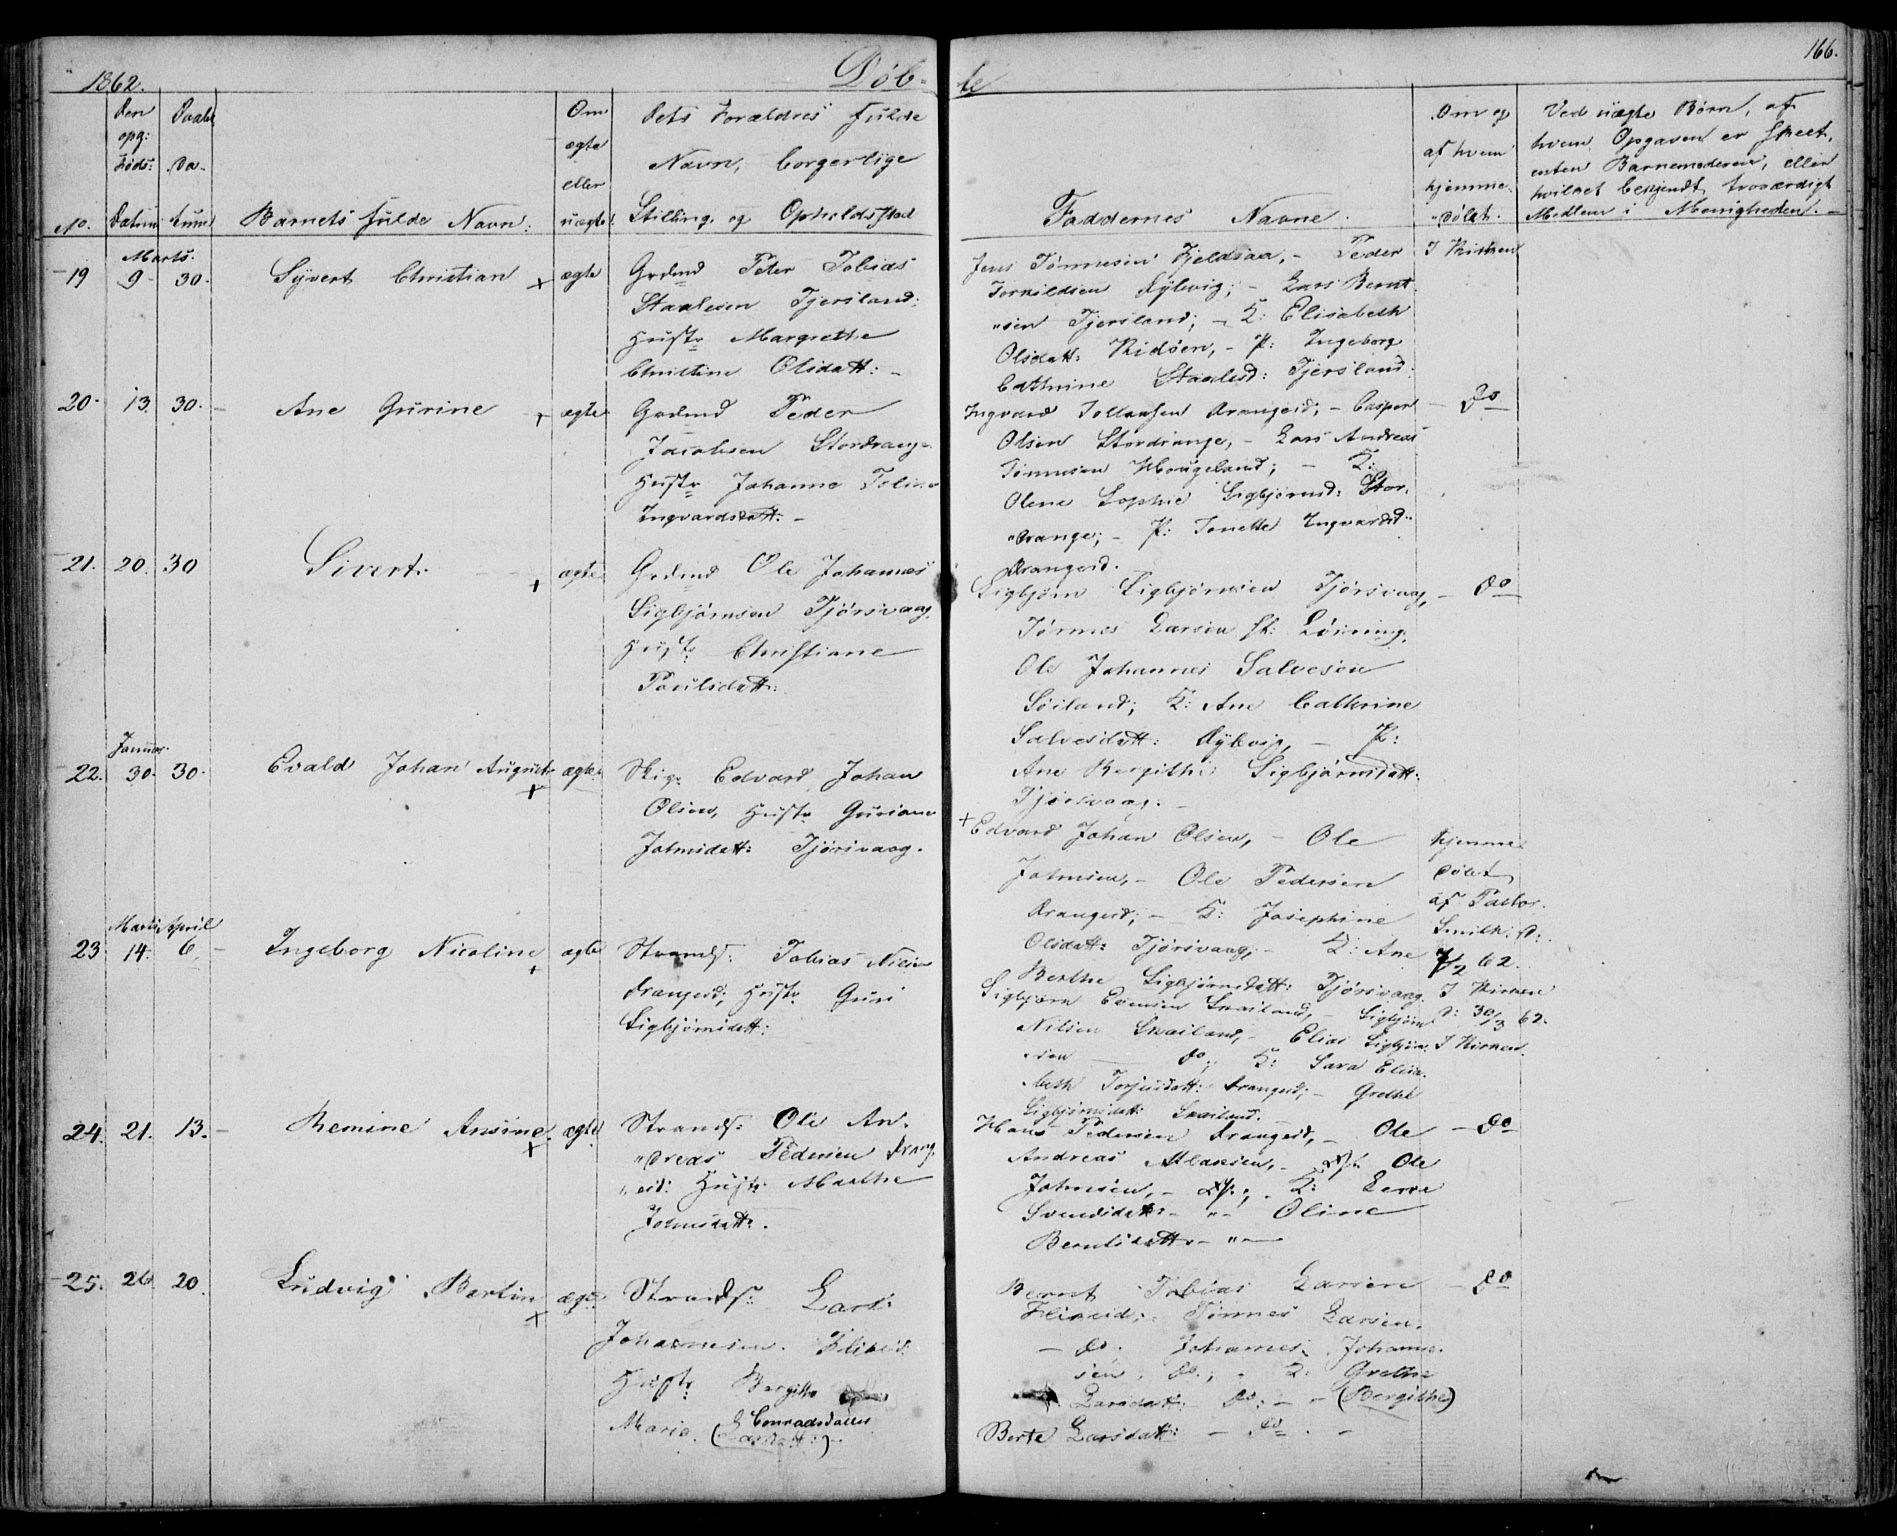 1862.
Døb-
te
166.
Den
opg:
Føds:
Datum
Daabs
Da-
tum
No.
Barnets fulde Navn.
Om
ægte
eller
uægte
Dets Forældres fulde
Navn, borgerlige
Stilling og Opholdssted
Faddernes Navne.
Om og
af hvem
hjemme-
døbt.
Ved uægte Børn, af
hvem Opgaven er skeet,
enten Barnemoderen, eller
hvilket bekjendt, troværdigt
Medlem i Menigheden.
Marts.
19 9 30. Syvert Christian + ægte
Grdmd Peter Tobias
Staalesen Tjersland;
Hustr Margrethe
Christine Olsdatt: -
Jens Tönnesen Fjeldsaa, - Peder
Torkildsen Rylevig; - Lars Bernt
"sen Tjersland; - K: Elisabeth
Olsdatt: Kidöen, - P: Ingeborg
Cathrine Staalesd: Tjersland.
I Kirken
20. 13. 30. - Ane Gurine + ægte
Grdmd Peder
Jacobsen Stordrang-
Hustr Johanne Toline
Ingvardsdatt: -
Ingvard Tollaksen Drangeid; - Casper
Olsen Stordrange, - Lars Andreas
Tönnesen Hougeland; - K:
Olene Sophie Sigbjörnsd: Stor-
"drange; - P: Tonette Ingvardsd:
Drangeid.
- Do
21. 20. 30 Sivert. + ægte
Grdmd Ole Johannes
Sigbjörnsen Tjörsvaag.
Hustr Christiane
Poulsdatt:
Sigbjörn Sigbjörnsen Tjörsvaag,
Tönnes Larsen Löining.
Ole Johannes Salvesen
Söiland; K: Ane Cathrine
Salvesdatt: Rylevig, - P:
Ane Bergithe Sigbjörnsdatt:
Tjörsvaag. -
- Do
Januar.
22. 30. 30. Evald Johan August + ægte
Skip: Edvard Johan
Olsen, Hustr Guriane
Johnsdatt: Tjörsvaag.
+ Edvard Johan Olsen, - Ole
Johnsen, - Ole Pedersen
Drangeid; - K: Josephine
Olsdatt: Tjörsvaag; - K: Ane
Berthe Sigbjörnsdatt: Tjörsvaag.
Hjemme
döbt
af Pastor
Smith. D:
7/2 62.
I Kirken
D: 30/3 62.
Marts April
23. 14. 6. - Ingeborg Nicoline + ægte
Strands: Tobias Nilsen
Drangeid; Hustr Guri
Sigbjörnsdatt:
Sigbjörn Evensen Skailand, - Sigbjörn
Nilsen Skailand, - Elias Sigbjörn-
sen - do; K: Sara Elisa-
beth Torjusdatt: Drangeid; - Grethe
Sigbjörnsdatt: Skailand.
I Kirken.
24. 21. 13. - Remine Ansine. + ægte
Strands: Ole An-
"dreas Pedersen Drang-
"eid: Hustr: Marthe
Johnsdatt: .
Hans Pedersen Drangeid, - Ole
Andreas - Ole
Johnsen, - K:
Svendsdatt: - "- Oline
Berntsdatt: - " -
- Do
25. 26. 20. Ludvig Bertin + ægte
Strands: Lars
Johannesen Flikeid.
Hustr Bergitha
Maria. (Conradsdatter
Larsdatt:)
Bernt Tobias Larsen
Flikeid; Tönnes Larsen.
- do. Johannes Johanne-
sen. do., - K: Grethe
Larsdatt: do; - - (Bergithe)
Berte Larsdatt: - do. -
- Do